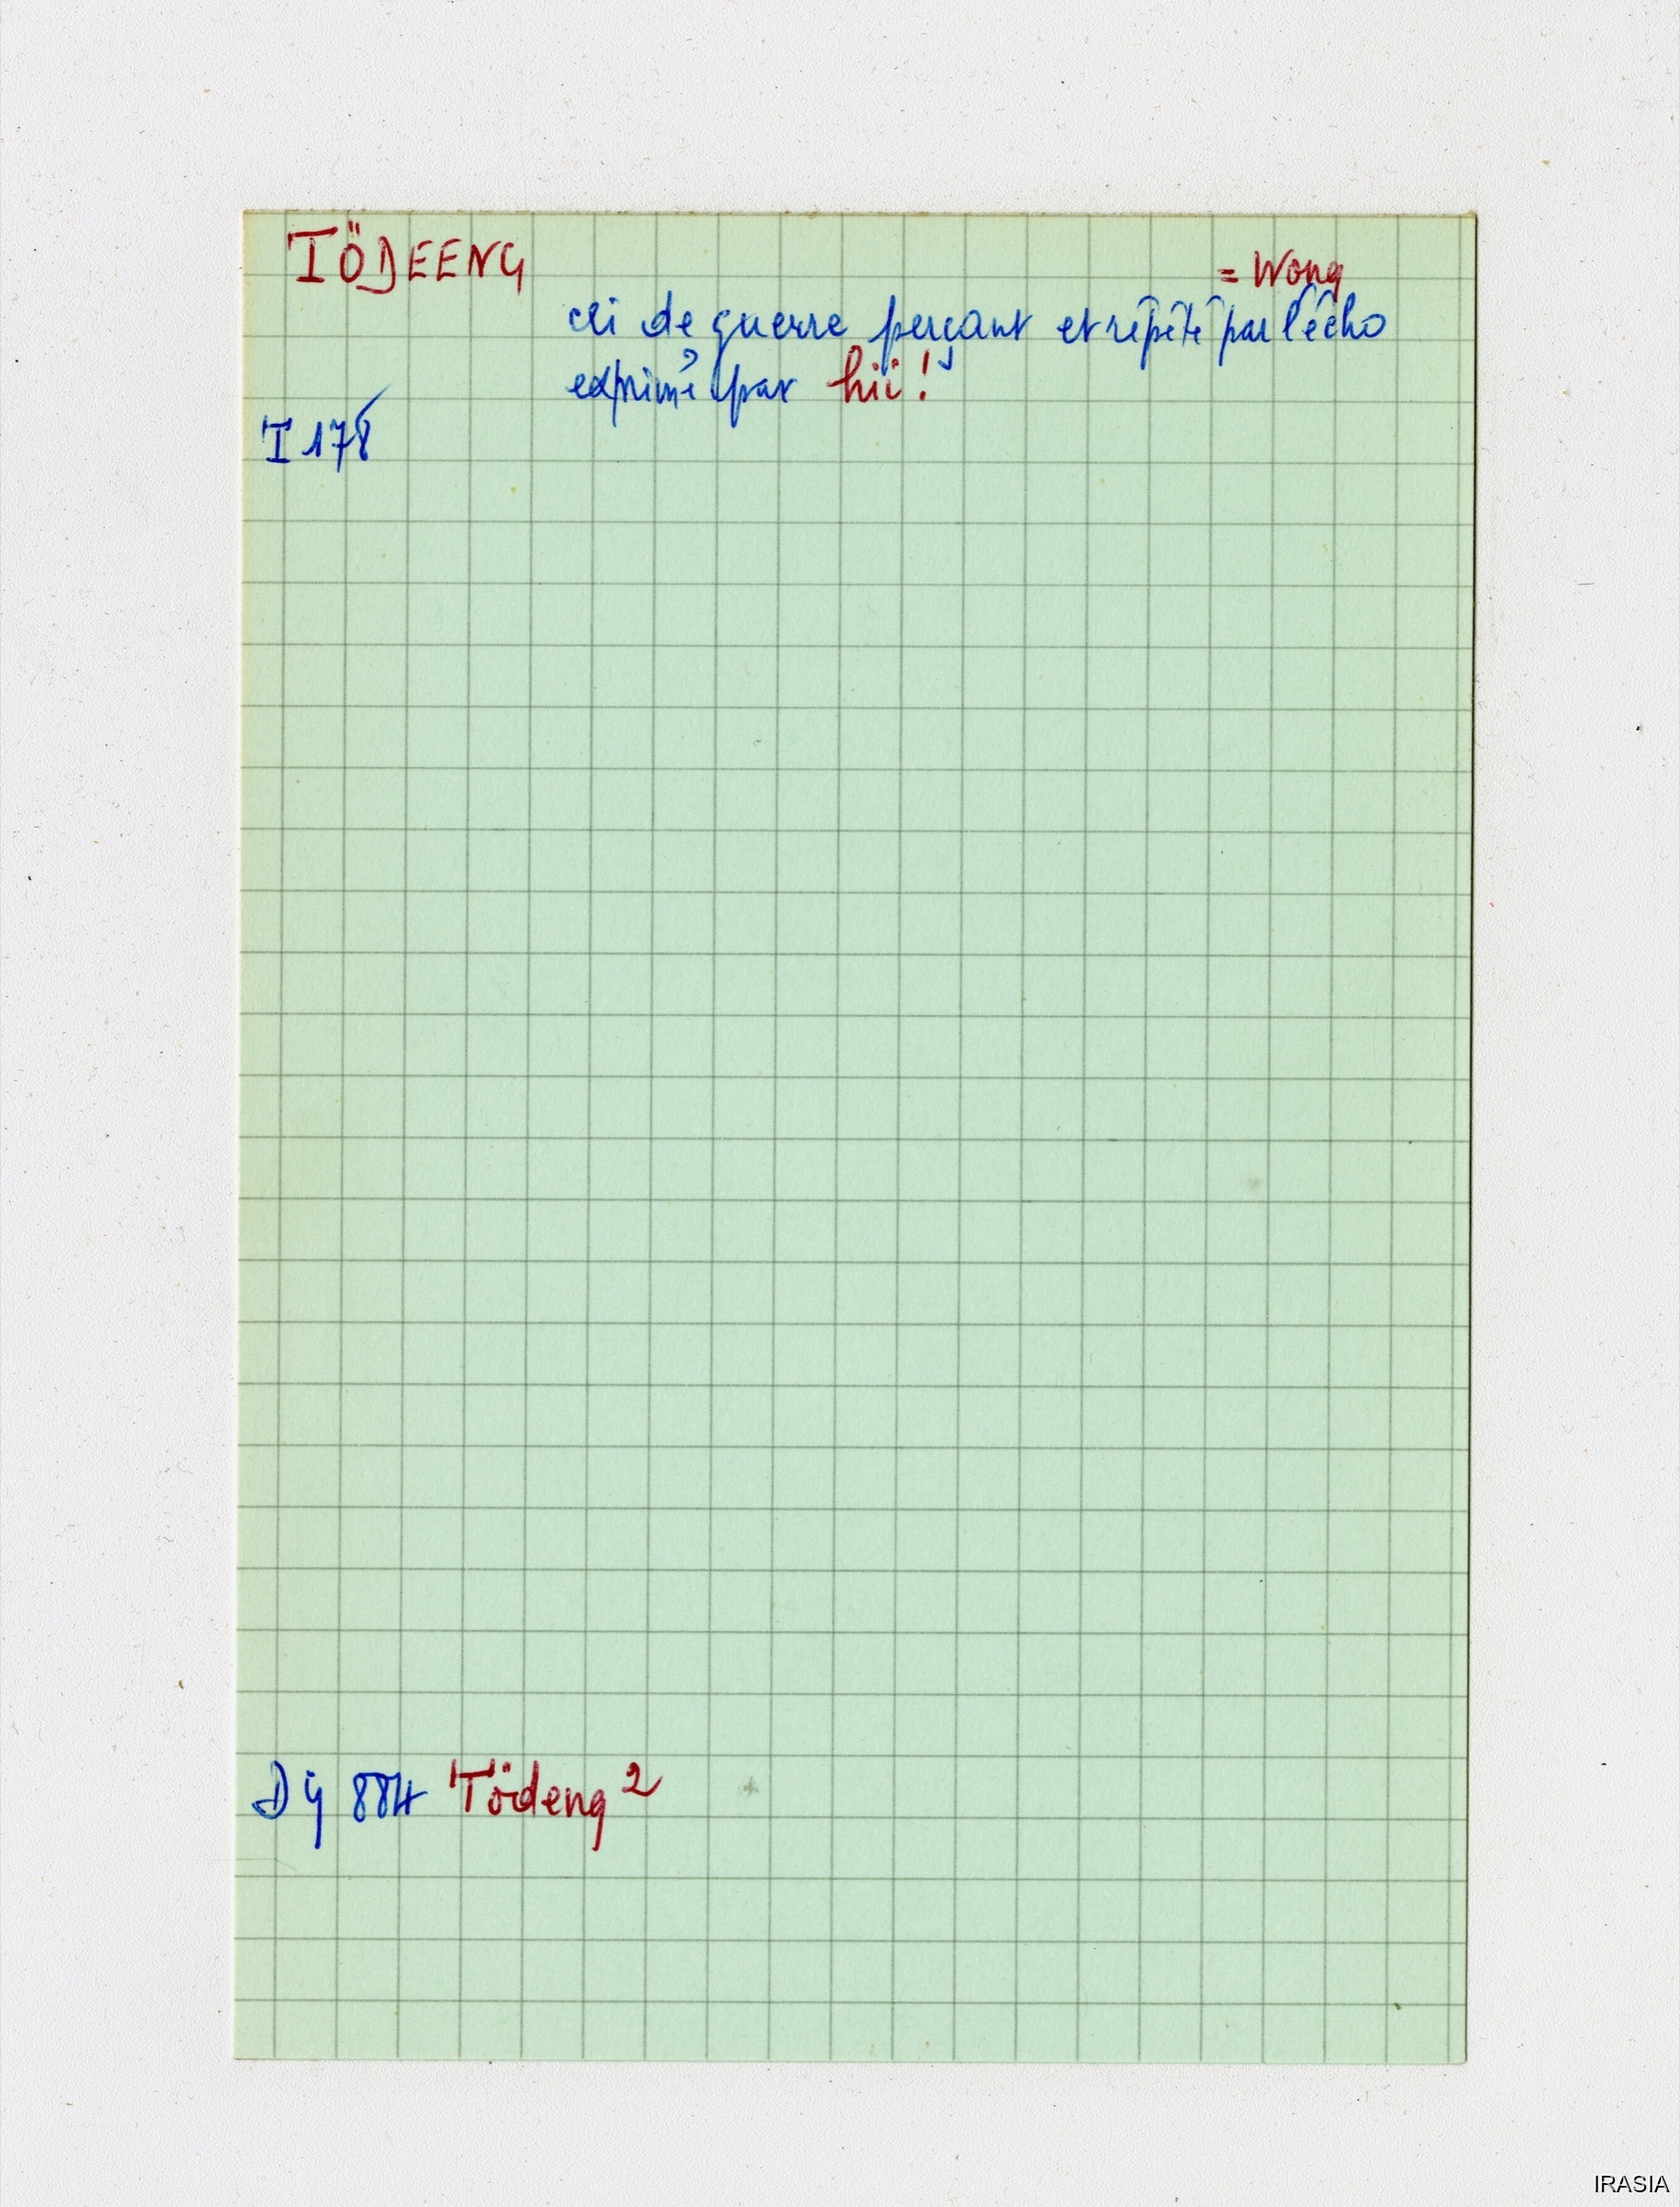 TÖDEENG
= Wong
cri de guerre perçant et répété par l'écho
exprimé par hii!
I 178
Dy 884 Tödeng 2
IRASIA